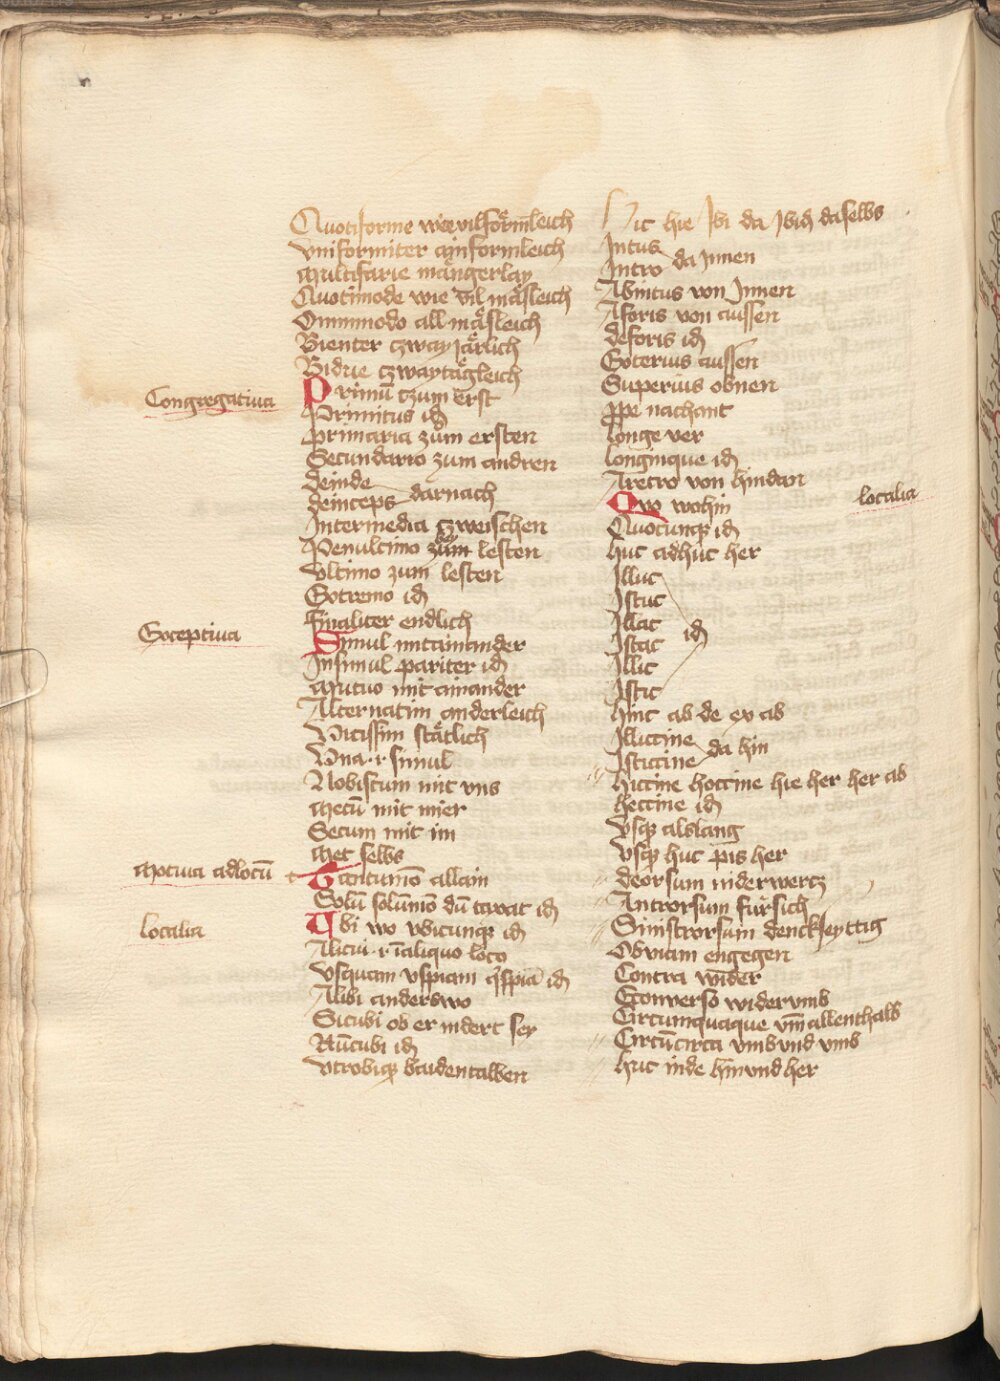 Quotiforme wievilförmleich
vniformiter ainformleich
multifarie mangerlay
Quotimode wie vil mäsleich
Omnimodo all mäsleich
Bienter czwayJärlich
Bidue czwaytägleich
Congregatiua
Primū tzum erst
Primitus id
primaria zum ersten
Secundario zum andren
deinde
deinceps darnach
Intermedia czweischen
Penultimo zum lesten
vltimo zum lesten
Extremo id
finaliter endlich
Exceptiua
Simul mitainander
Insimul pariter id
mutuo mit ainander
Alternatim anderleich
Vicissim stätlich
Vna .r. simul
Nobiscum mit vns
mecū mit mier
Secum mit im
met selbs
Motiua ad locū
Tantūmō allain
Solū solūmō dū taxat id
Localia
Vbi wo vbicunqꝫ id
Alicui .r. īaliquo loco
vsquam vspiam id
Alibi anderswo
Sicubi ob er indert sey
Nūcubi id
vtrobiqꝫ baidentalben
Hic hie Ibi da Ibid daselbs
Intus
Intro da Innen
Abintus von Innen
Aforis von aussen
deforis id
Exterius aussen
Superius obnen
ꝓpe nachant
longe ver
longinque id
Aretro von hindan
localia
Quo wohin
Quocunqꝫ id
huc adhuc her
Illuc
Istuc
Illac
Istac id
Illic
Istic
hinc ab de ex ab
Illiccine
Isticcine da hin
hiccine hoccine hie her her ab
heccine id
vsqꝫ alslang
vsqꝫ huc pis her
deorsum niderwercz
Antrorsum fürsich
Sinistrorsum denckseyttig
Obuiam engegen
Contra wider
Econuerso widerumb
Circumquaque vm allenthalb
Circūcirca vmb vnd vmb
huc inde hin vnd her